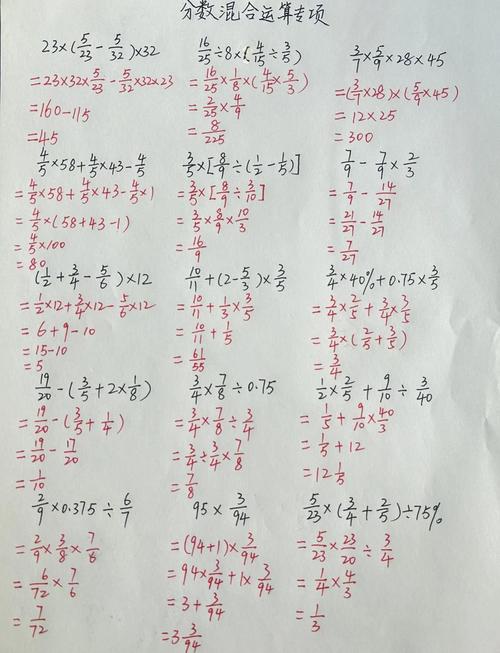 分数混合运算专项
23×(5/23 - 5/32)×32
=23×32×5/23 - 5/32×32×23
=160-115
=45
16/25÷8×(4/15÷3/5)
=16/25×1/8×(4/15×5/3)
=2/25×4/9
=8/225
3/7×5/9×28×45
=(3/7×28)×(5/9×45)
=12×25
=300
4/5×58+4/5×43-4/5
=4/5×58+4/5×43-4/5×1
=4/5×(58+43-1)
=4/5×100
=80
3/5×[8/9÷(1/2-1/5)]
=3/5×[8/9÷3/10]
=3/5×8/9×10/3
=16/9
7/9-7/9×2/3
=7/9-14/27
=21/27-14/27
=7/27
(1/2+3/4-5/6)×12
=1/2×12+3/4×12-5/6×12
=6+9-10
=15-10
=5
10/11+(2-5/3)×3/5
=10/11+1/3×3/5
=10/11+1/5
=61/55
3/4×40%+0.75×3/5
=3/4×2/5+3/4×3/5
=3/4×(2/5+3/5)
=3/4
19/20-(3/5+2×1/8)
=19/20-(3/5+1/4)
=19/20-17/20
=1/10
3/4×7/8÷0.75
=3/4×7/8÷3/4
=3/4÷3/4×7/8
=7/8
1/2×2/5+9/10÷3/40
=1/5+9/10×40/3
=1/5+12
=12 1/5
2/9×0.375÷6/7
=2/9×3/8×7/6
=6/72×7/6
=7/72
95×3/94
=(94+1)×3/94
=94×3/94+1×3/94
=3+3/94
=3 3/94
5/23×(3/4+2/5)÷75%
=5/23×23/20÷3/4
=1/4×4/3
=1/3